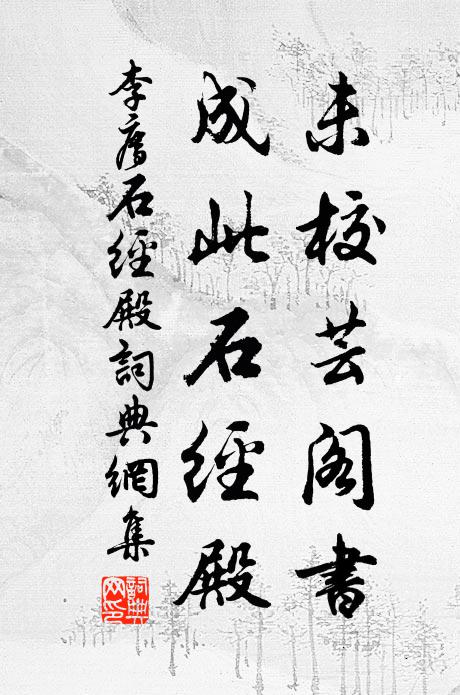 未校芸閣書
成此石經殿
李廌石經殿詞典網集
詞典網印